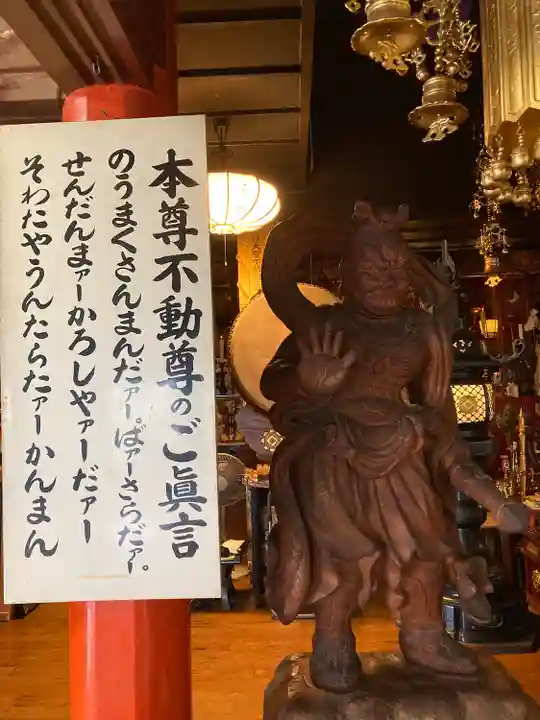 本尊不動尊のご眞言
のうまくさんまんだァー。ばァーさらだァー。
せんだんまァーかろしやァーだァー
そわたやうんたらたァーかんまん